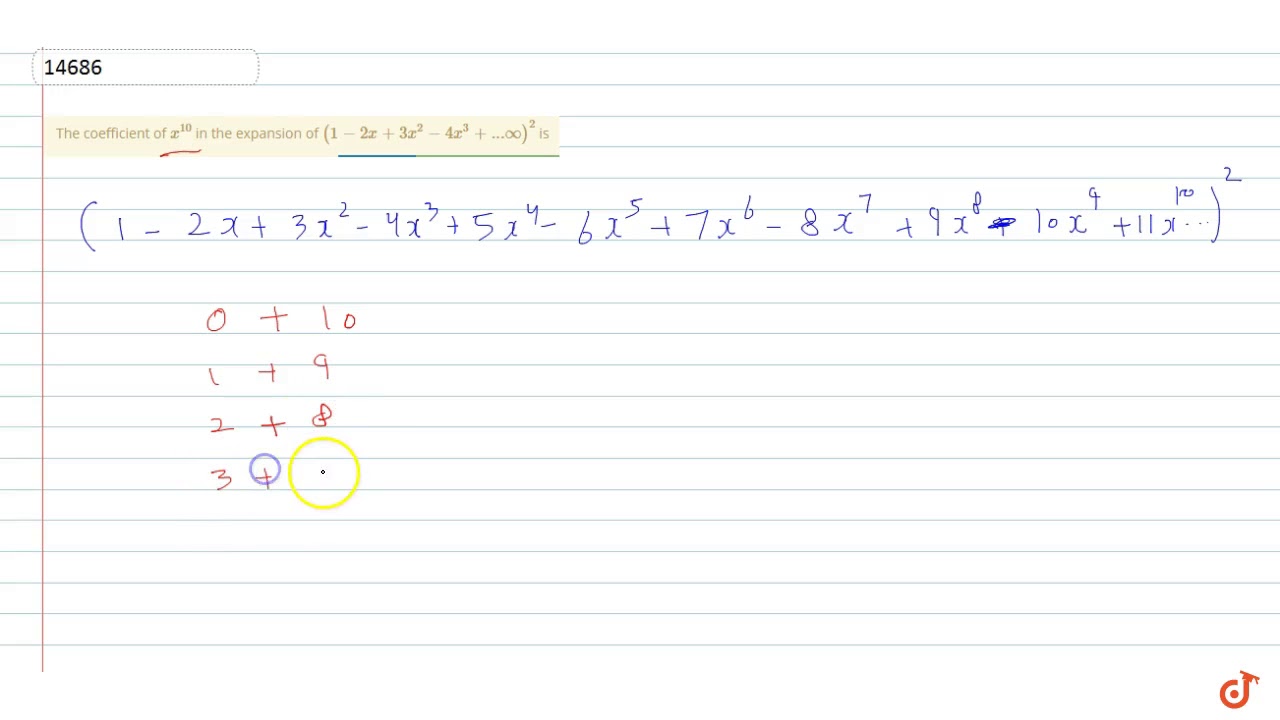 14686
The coefficient of x¹⁰ in the expansion of (1 − 2x + 3x² − 4x³ + ...∞)² is
(1 − 2x + 3x² − 4x³ + 5x⁴ − 6x⁵ + 7x⁶ − 8x⁷ + 9x⁸ − 10x⁹ + 11x¹⁰ ...)²
0 + 10
1 + 9
2 + 8
3 +